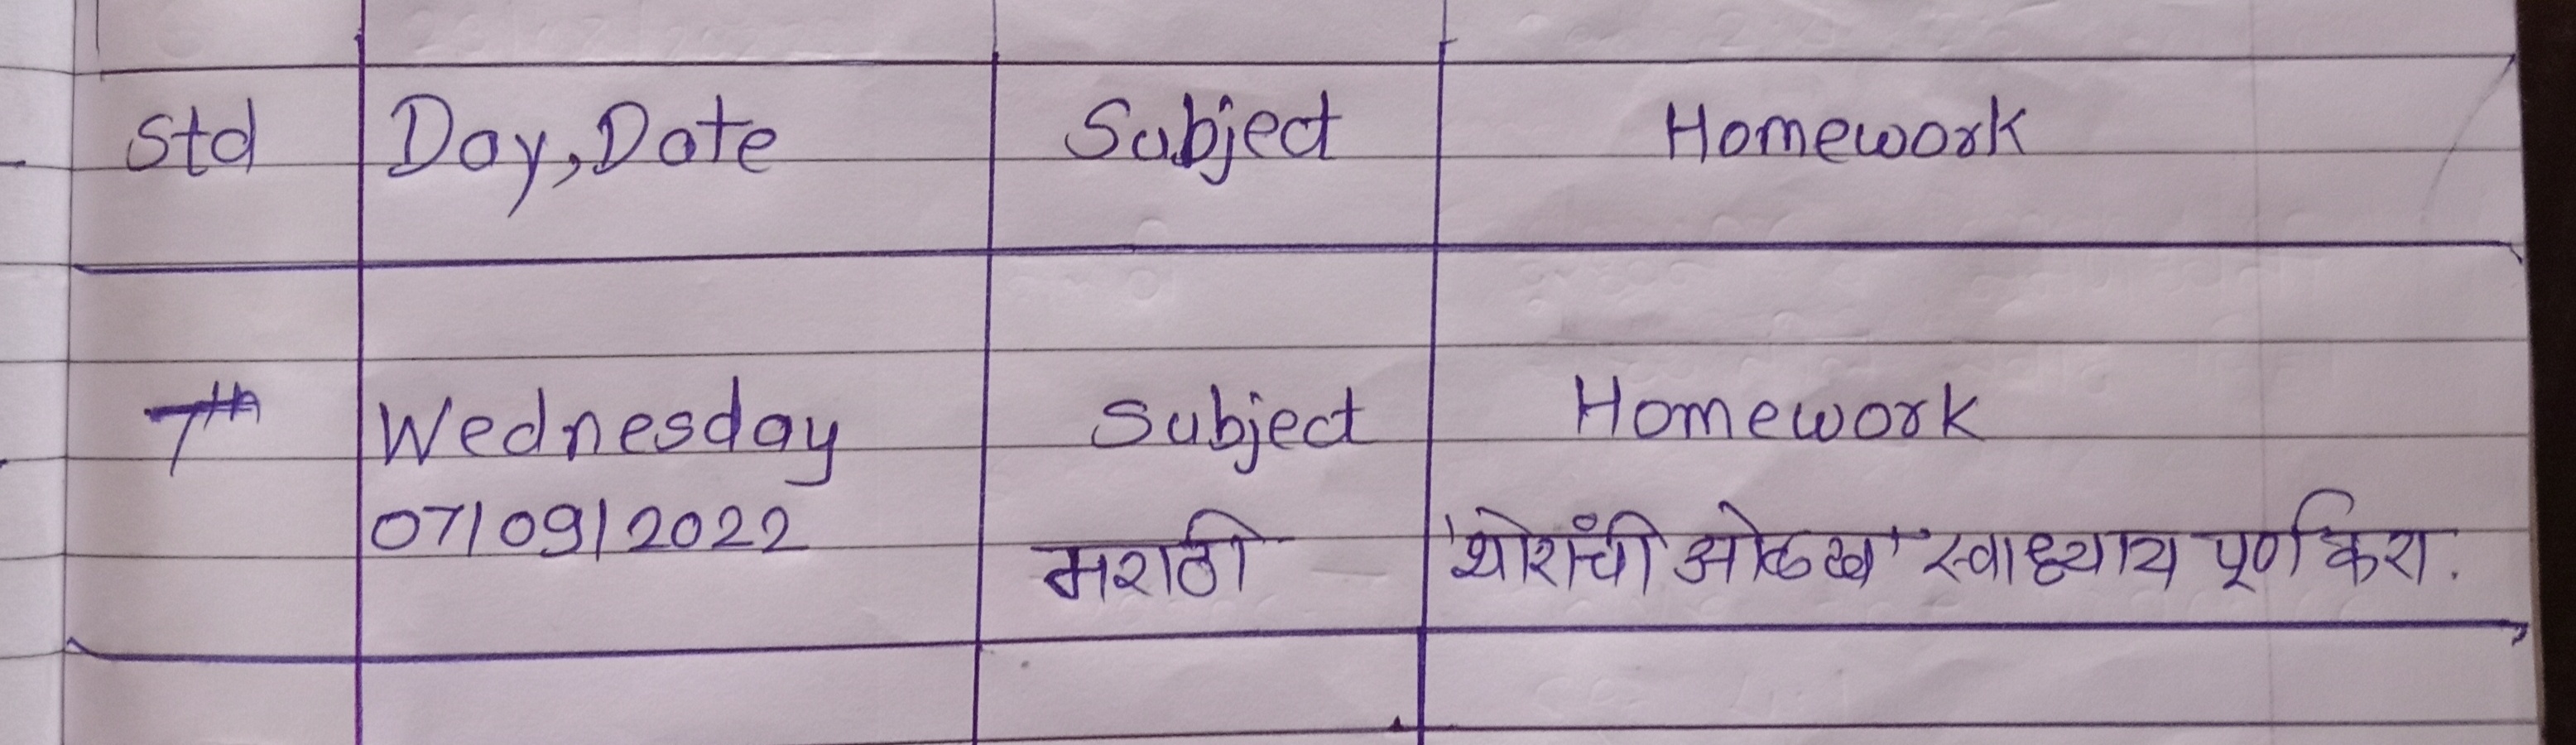 Std Day, Date Subject Homework
7th Wednesday Subject Homework
07/09/2022 मराठी 'थोरांची ओळख' स्वाध्याय पूर्ण करा.